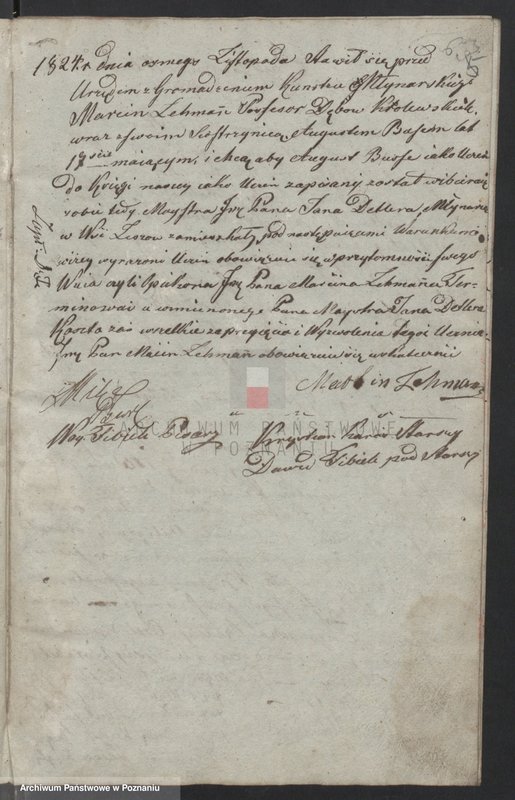 1824 r dnia osmego Listopada Stawił się przed
Urzędem Zgromadzenia Kunsztu Młynarskiego
Marcin Lehmañ Profesor Dębow
wraz z swoim Siostrzyńcem Augustem Bussem lat
18 maiącym, i chcąc aby August Busse iako Uczeń
do Księgi naszey iako Uczeń zapisany został wibieraią
sobie tedy Maystra Jmć Pana Jana Dettera Młynarza
w Wsi zamieszkały pod następuiącemi Warunkami
wizey wyrażony Uczeń obowiązuie się w przytomności swego
Wuia czyli Opiekuna Jmć Pana Marcina Lehmañ Ter-
minować u wmienionego Pana Maystra Jana Dettera
Koszta zaś wszelkie zaprzyięcia i Wyzwolenia tegoż Ucznia
Jmć Pan Marcin Lehmañ obowiązuie się
Lehman
Pisarz
Krystian Starszy
Dawid Tibiek pod Starszy
ARCHIWUM PAŃSTWOWE
W POZNANIU
Archiwum Państwowe w Poznaniu